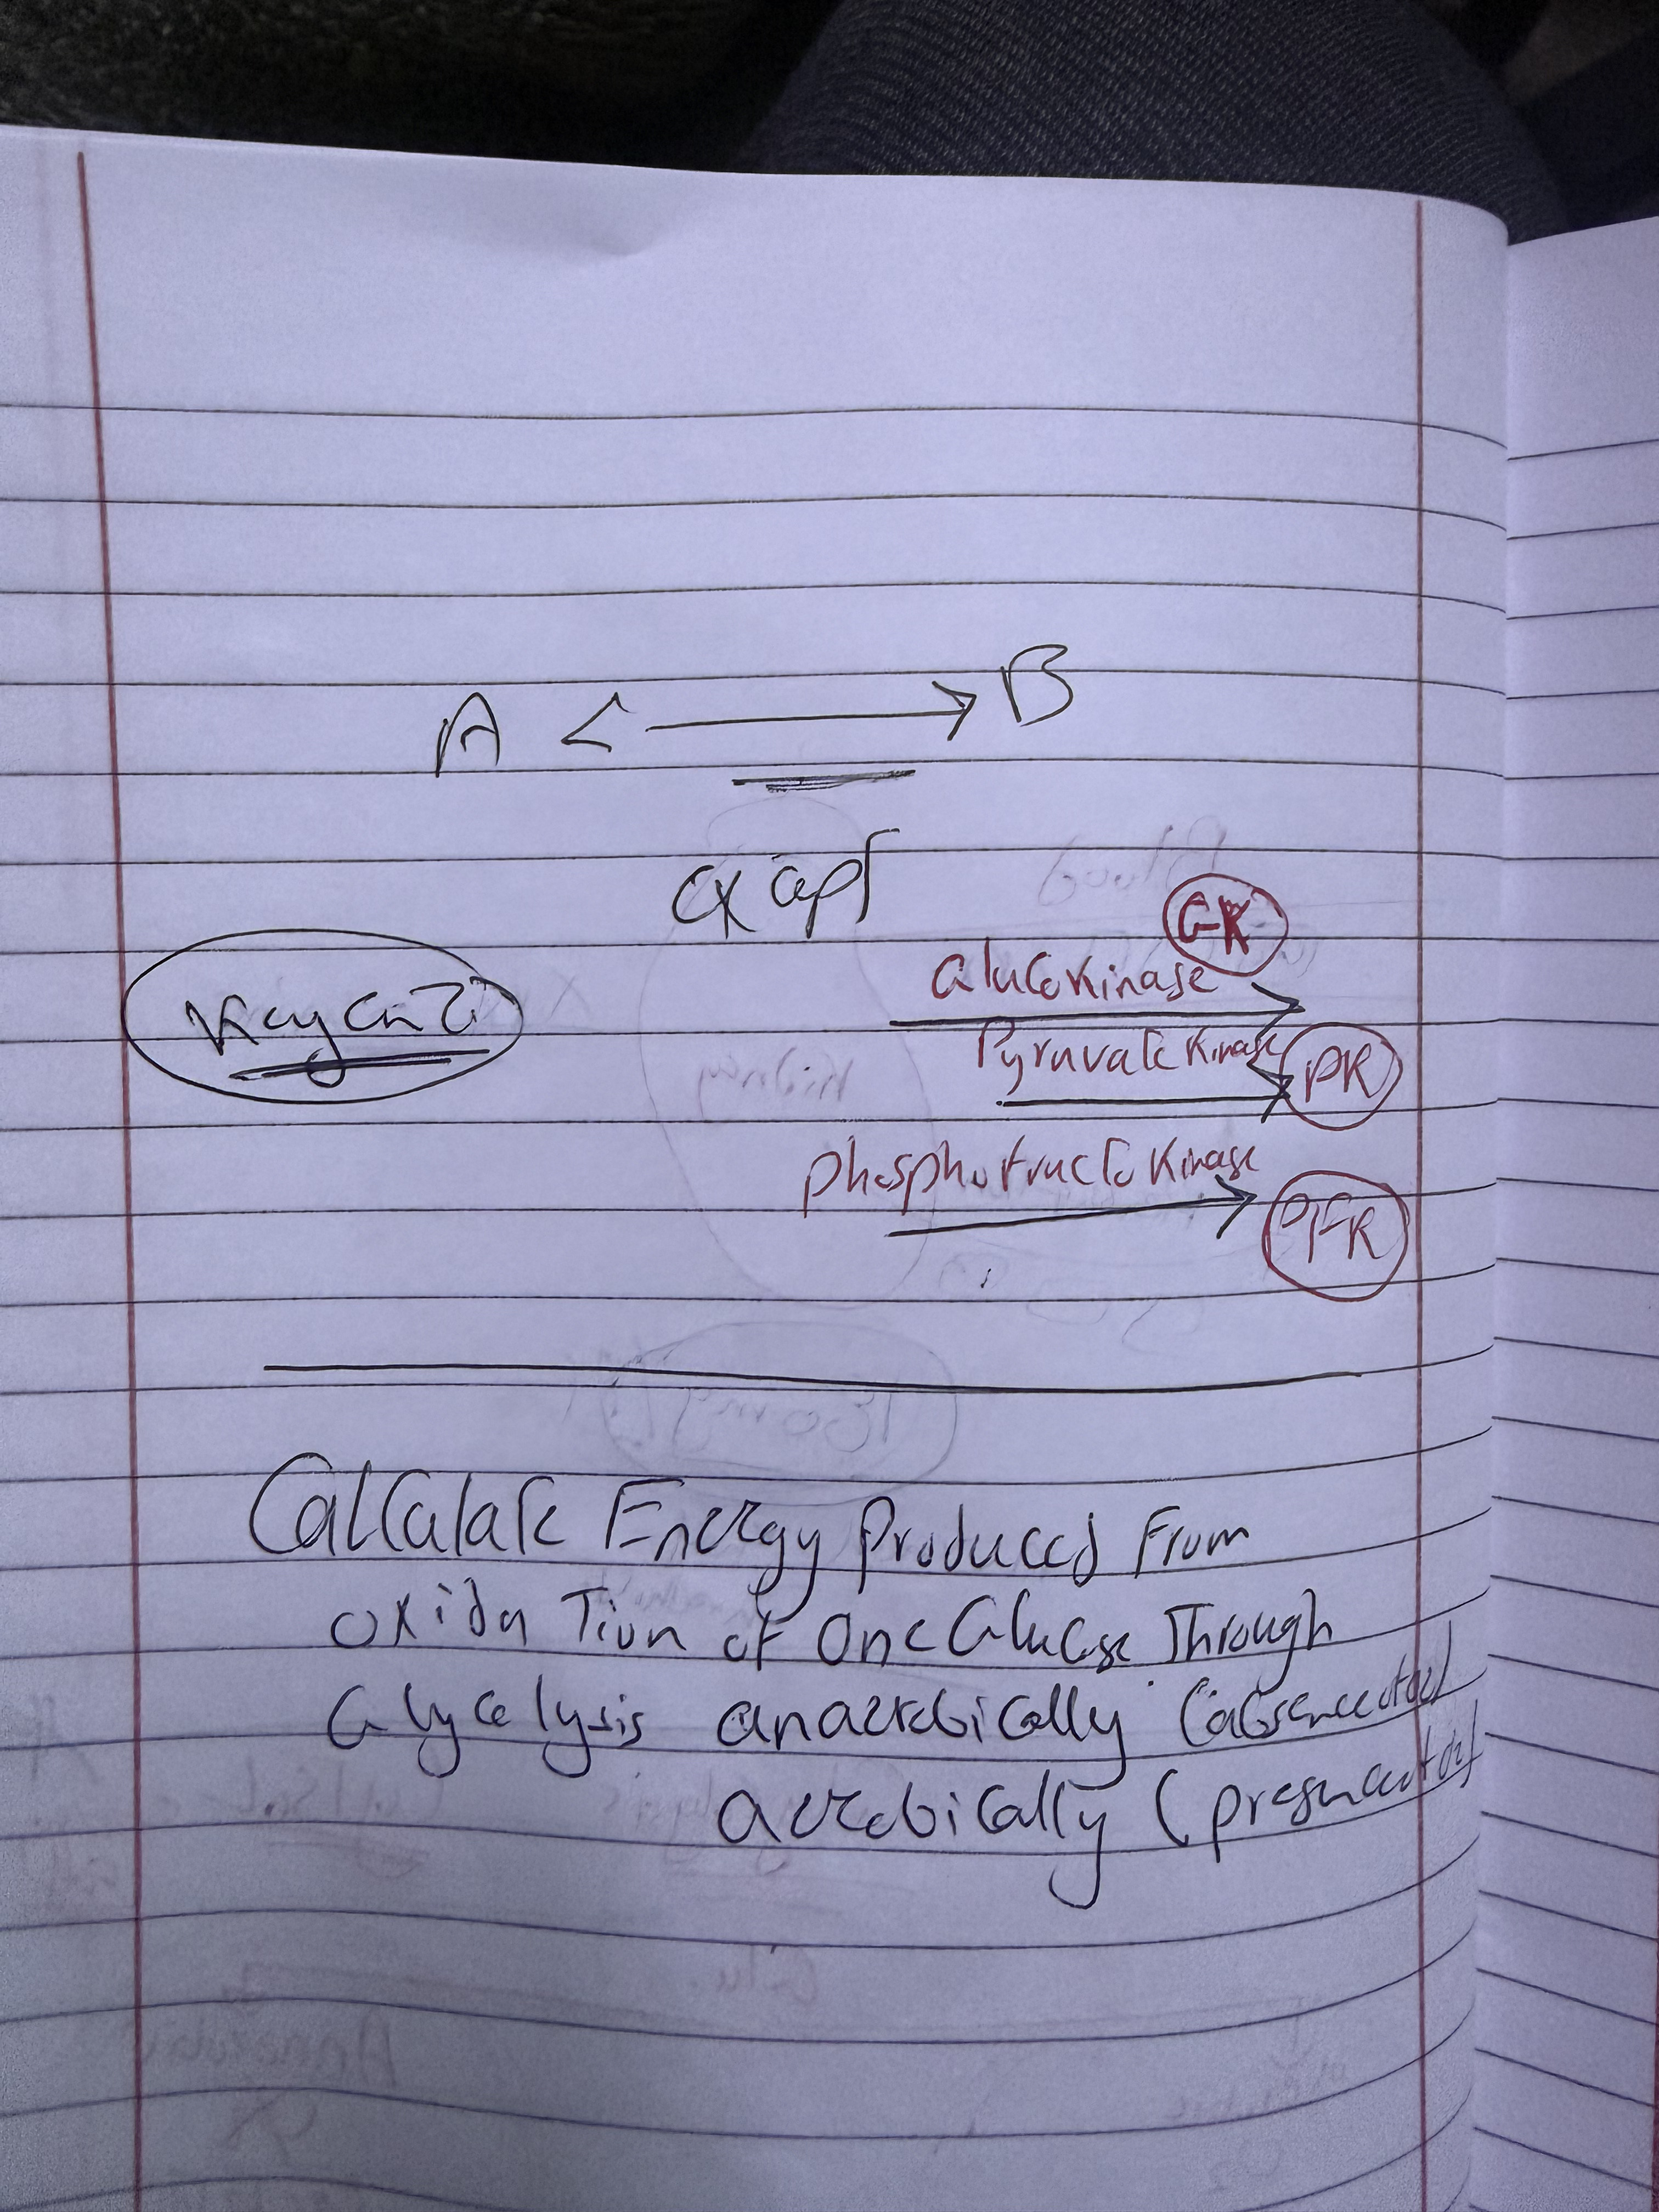 A <—> B
except
GK
Glucokinase
Key enz
Pyruvate Kinase PK
phosphofructokinase
PFK
Calculate Energy Produced From
oxidation of one Glucose Through
Glycolysis anaerobically (absence of O2)
aerobically (presence of O2)